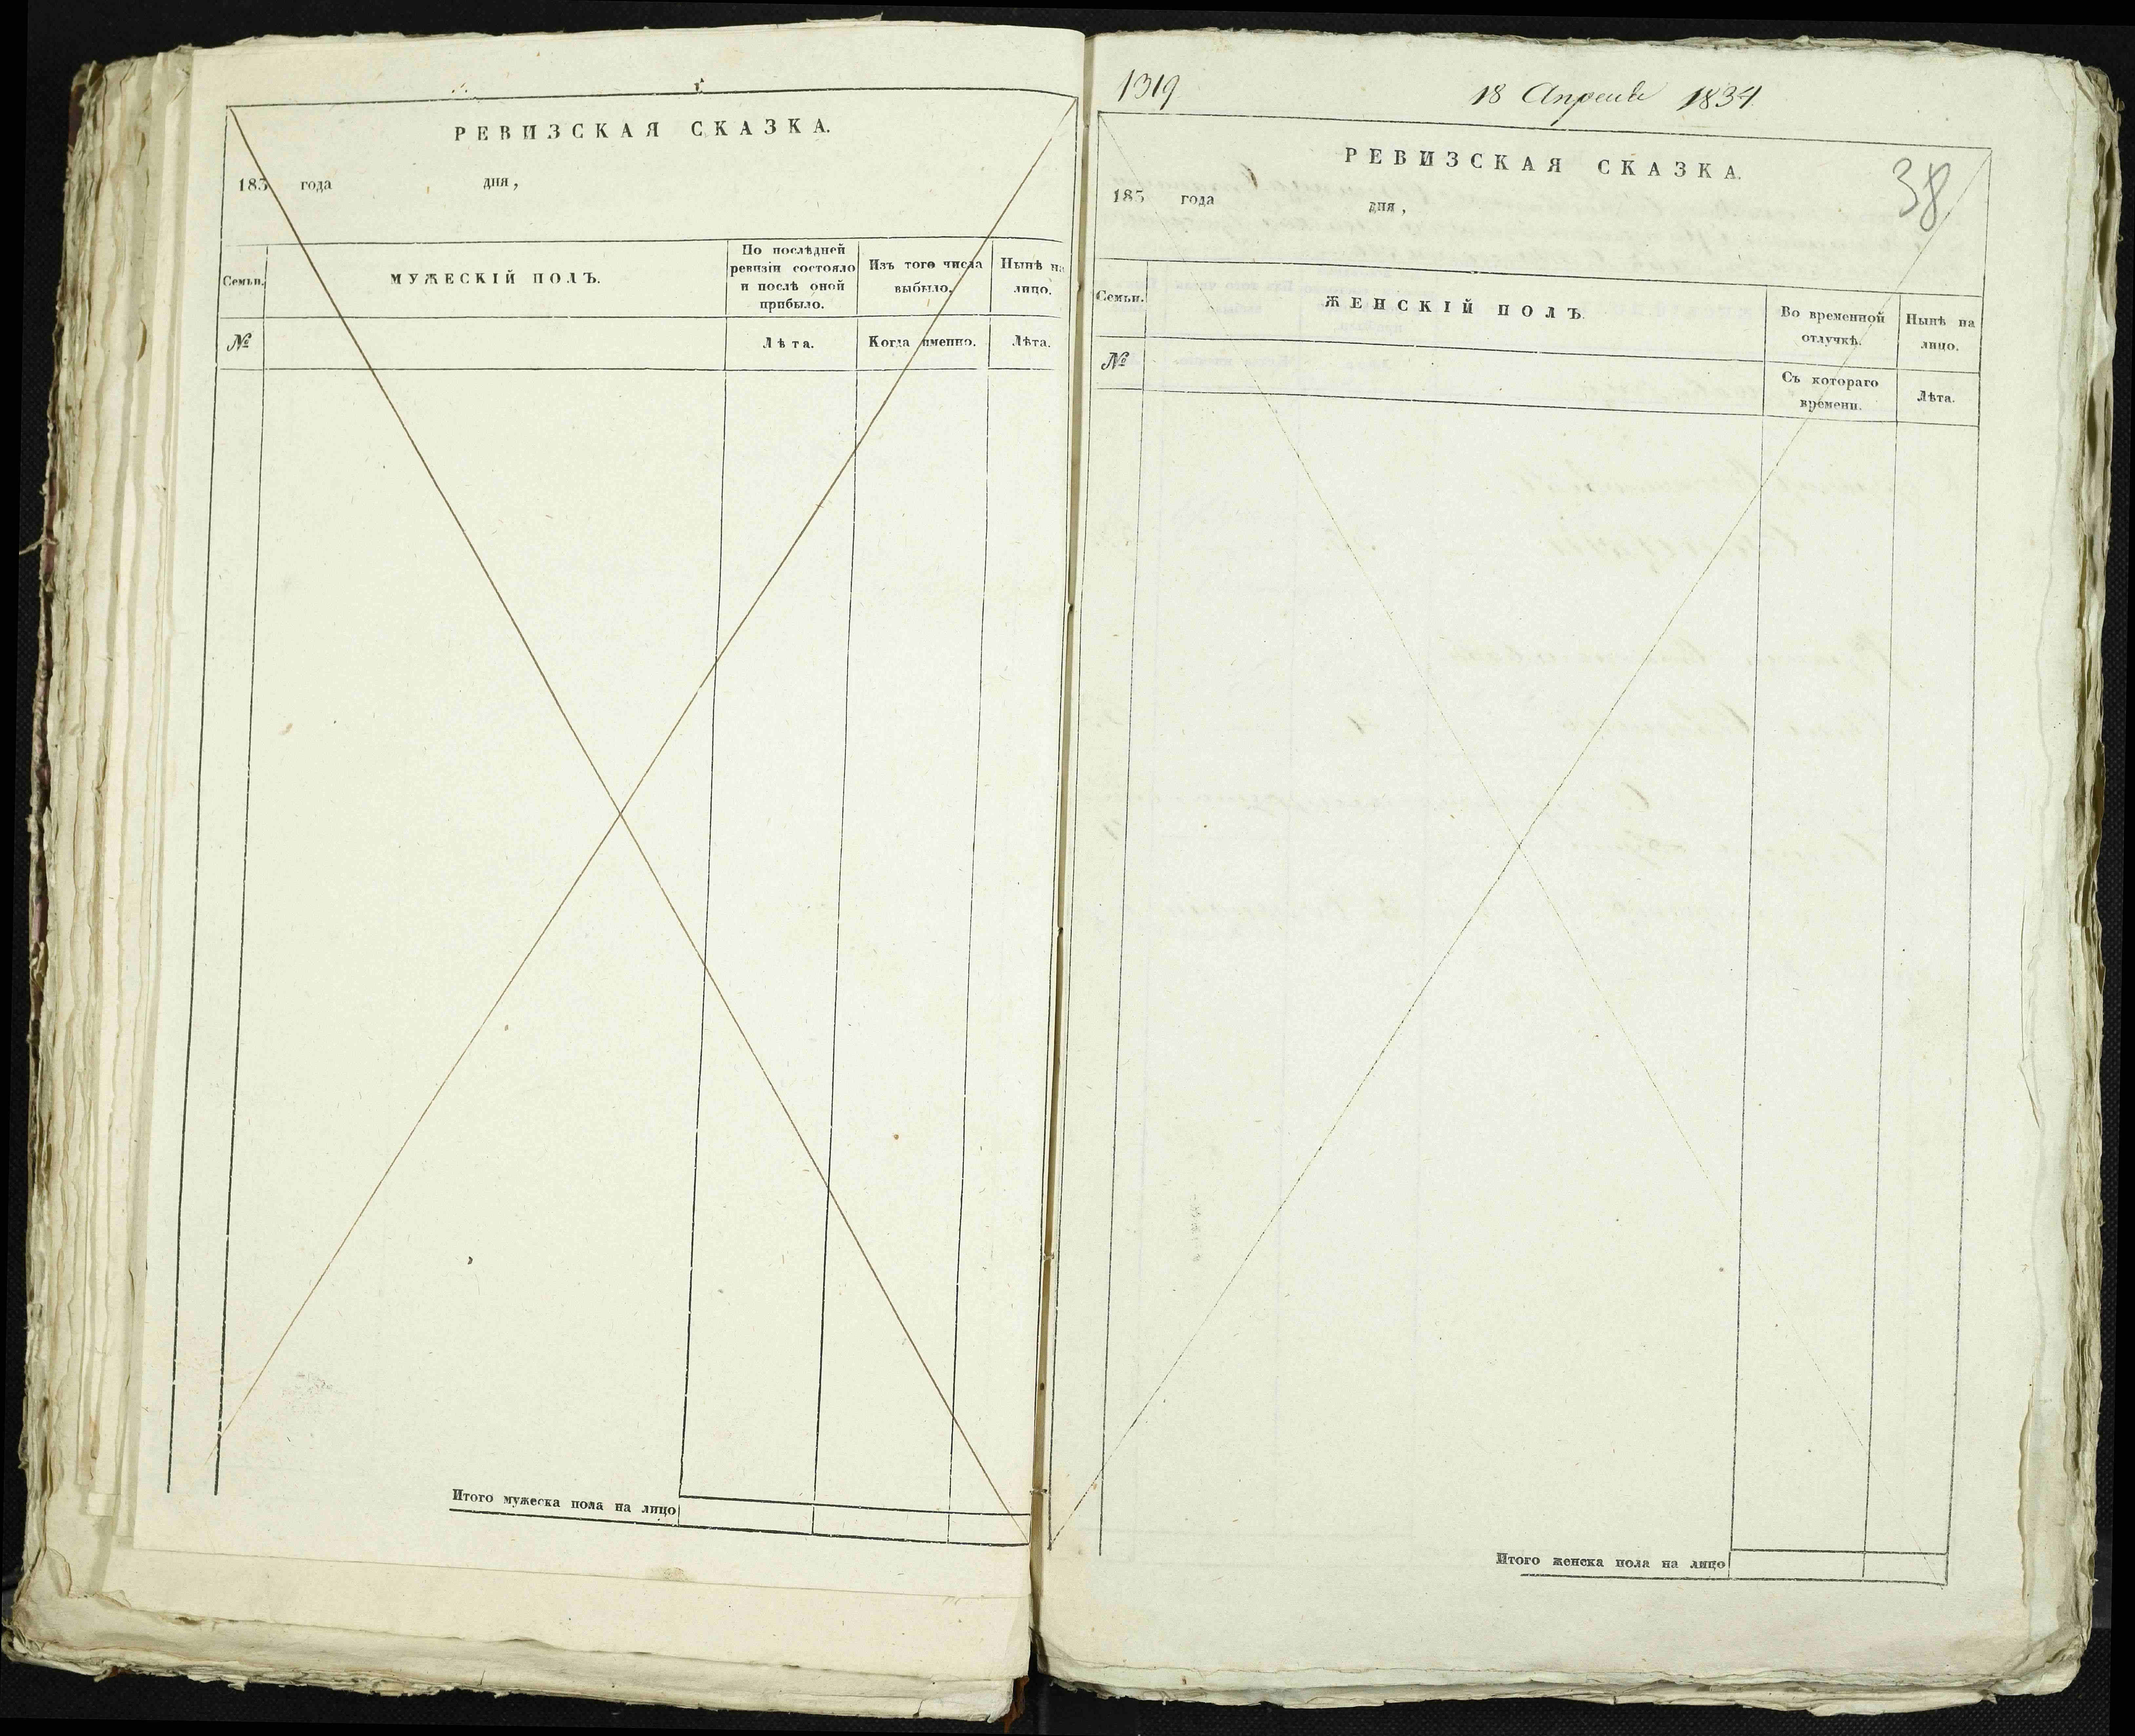 РЕВИЗСКАЯ СКАЗКА.
183 года дня,
Семьи.
МУЖЕСКІЙ ПОЛЪ.
По послѣдней ревизіи состояло и послѣ оной прибыло.
Изъ того числа выбыло.
Нынѣ на лицо.
№
Лѣта.
Когда именно.
Лѣта.
Итого мужеска пола на лицо
1319
18 Апреля 1834.
38
РЕВИЗСКАЯ СКАЗКА.
183 года дня,
Семьи.
ЖЕНСКІЙ ПОЛЪ.
Во временной отлучкѣ.
Нынѣ на лицо.
№
Съ котораго времени.
Лѣта.
Итого женска пола на лицо